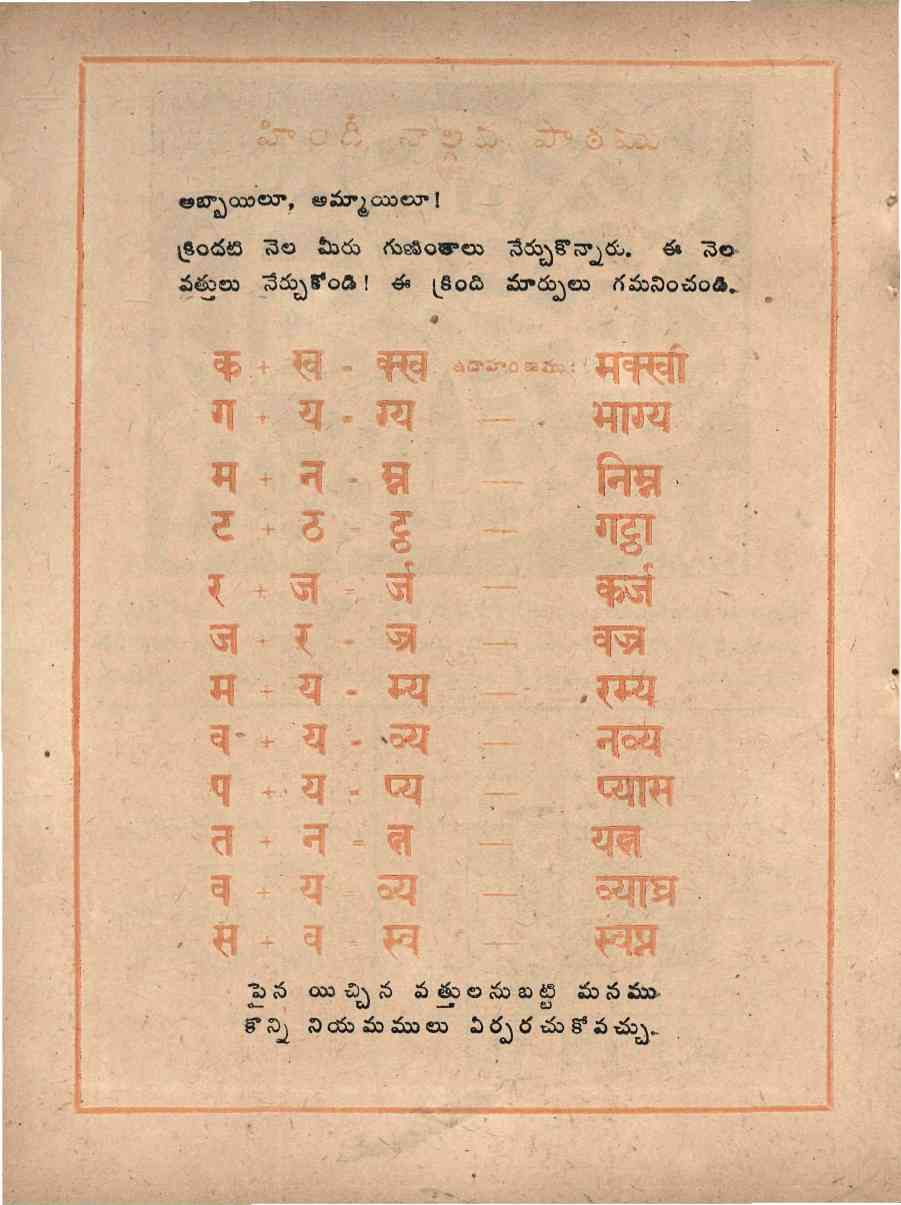 హిందీ నాల్గవ పాఠము
అబ్బాయిలూ, అమ్మాయిలూ!
క్రిందటి నెల మీరు గుణింతాలు నేర్చుకొన్నారు. ఈ నెల
వత్తులు నేర్చుకోండి! ఈ క్రింది మార్పులు గమనించండి.
क + ख - क्ख ఉదాహరణము: मक्खी
ग + य - ग्य — भाग्य
म + न - म्न — निम्न
ट + ठ - ट्ठ — गट्ठा
र + ज - र्ज — कर्ज
ज + र - ज्र — वज्र
म + य - म्य — रम्य
व + य - व्य — नव्य
प + य - प्य — प्यास
त + न = त्न — यत्न
व + य - व्य — व्याघ्र
स + व = स्व — स्वप्न
పైన యిచ్చిన వత్తులనుబట్టి మనము
కొన్ని నియమములు ఏర్పరచుకోవచ్చు.